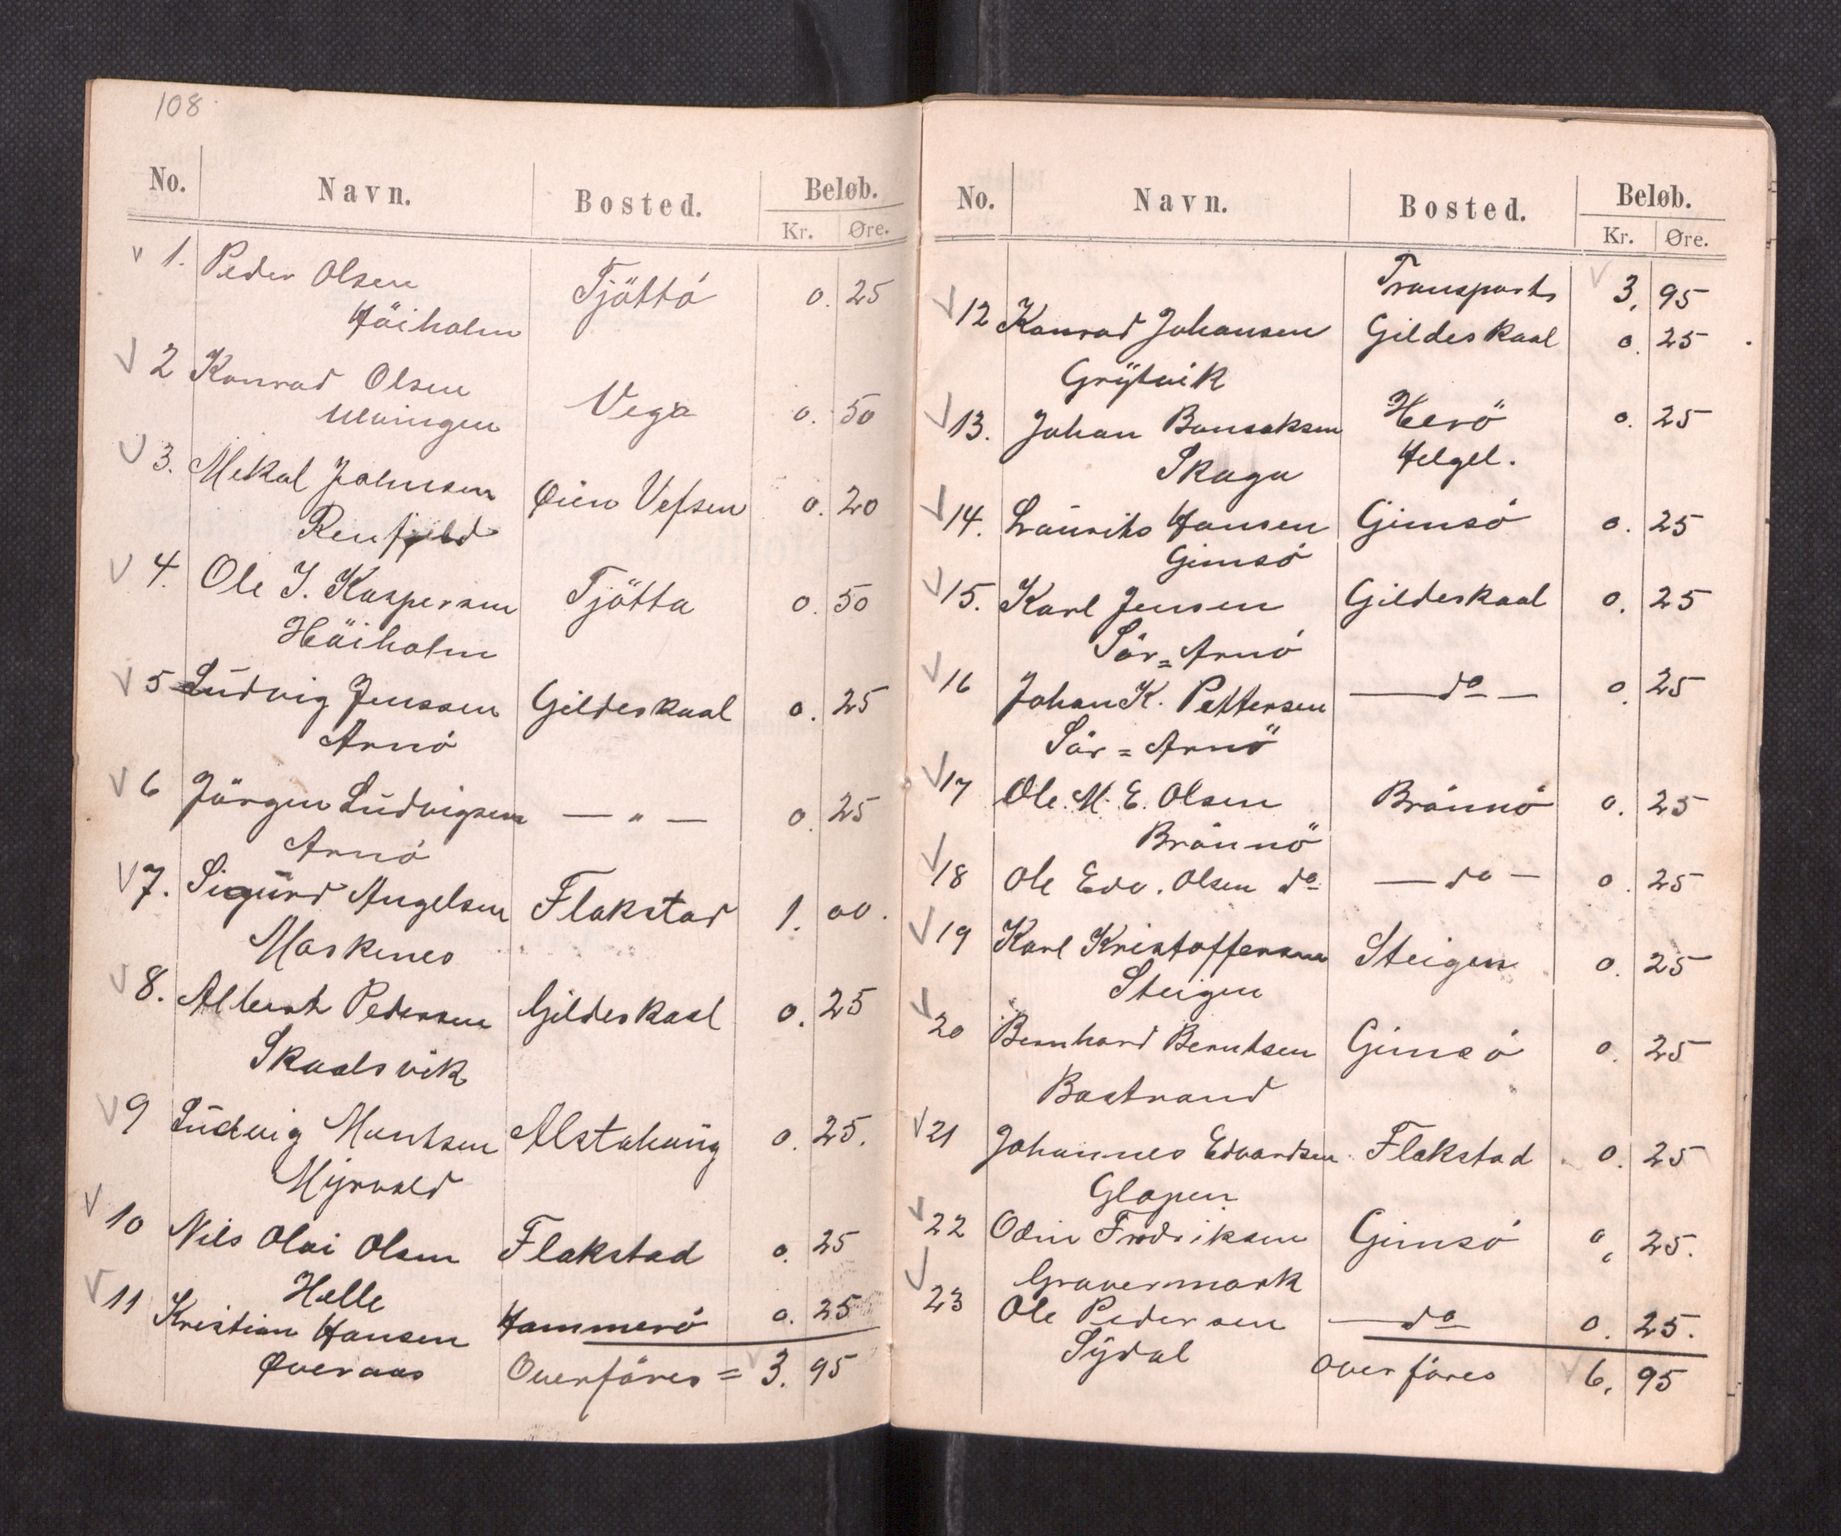 108
No. Navn. Bosted. Beløb.
Kr. Øre.
1. Peder Olsen Tjöttö 0. 25
Höiholm
2 Konrad Olsen Vega 0. 50
Ulvingen
3. Mekal Johnsen Øien Vefsen 0. 20
Renfjeld
4. Ole J. Kaspersen Tjötta 0. 50
Höiholm
5 Ludvig Jenssen Gildeskaal 0. 25
Arnö
6 Jörgen Ludvigsen — " — 0. 25
Arnö
7. Sigurd Angelsen Flakstad 1. 00.
Moskenes
8. Albert Pedersen Gildeskaal 0. 25
Skaalsvik
9 Ludvig Montsen Alstahaug 0. 25.
Myrvold
10 Nils Olai Olsen Flakstad 0. 25
Helle
11 Kristian Hansen Hammerö 0. 25
Øveraas Overföres = 3. 95
No. Navn. Bosted. Beløb.
Kr. Øre.
Transports 3, 95
12 Konrad Johansen Gildeskaal 0. 25
Grÿtvik
13. Johan Bonsaksen Herö 0. 25
Skaga Helgel.
14. Laurits Hansen Gimsö 0. 25
Gimsö
15. Karl Jensen Gildeskaal 0. 25
Sör = Arnö
16 Johan K. Pettersen — do — 0. 25
Sör = Arnö
17 Ole. M. E. Olsen Brönnö 0. 25
Brönnö
18 Ole Edv. Olsen do — do — 0. 25
19 Karl Kristoffersen Steigen 0. 25
Steigen
20 Bernhard Berntsen Gimsö 0. 25
Bastrand
21 Johannes Edvardsen Flakstad 0. 25
Glapen
22 Odin Fredriksen Gimsö 0, 25.
Gravermark
23 Ole Pedersen — do 0. 25.
Sÿdal overföres 6, 95